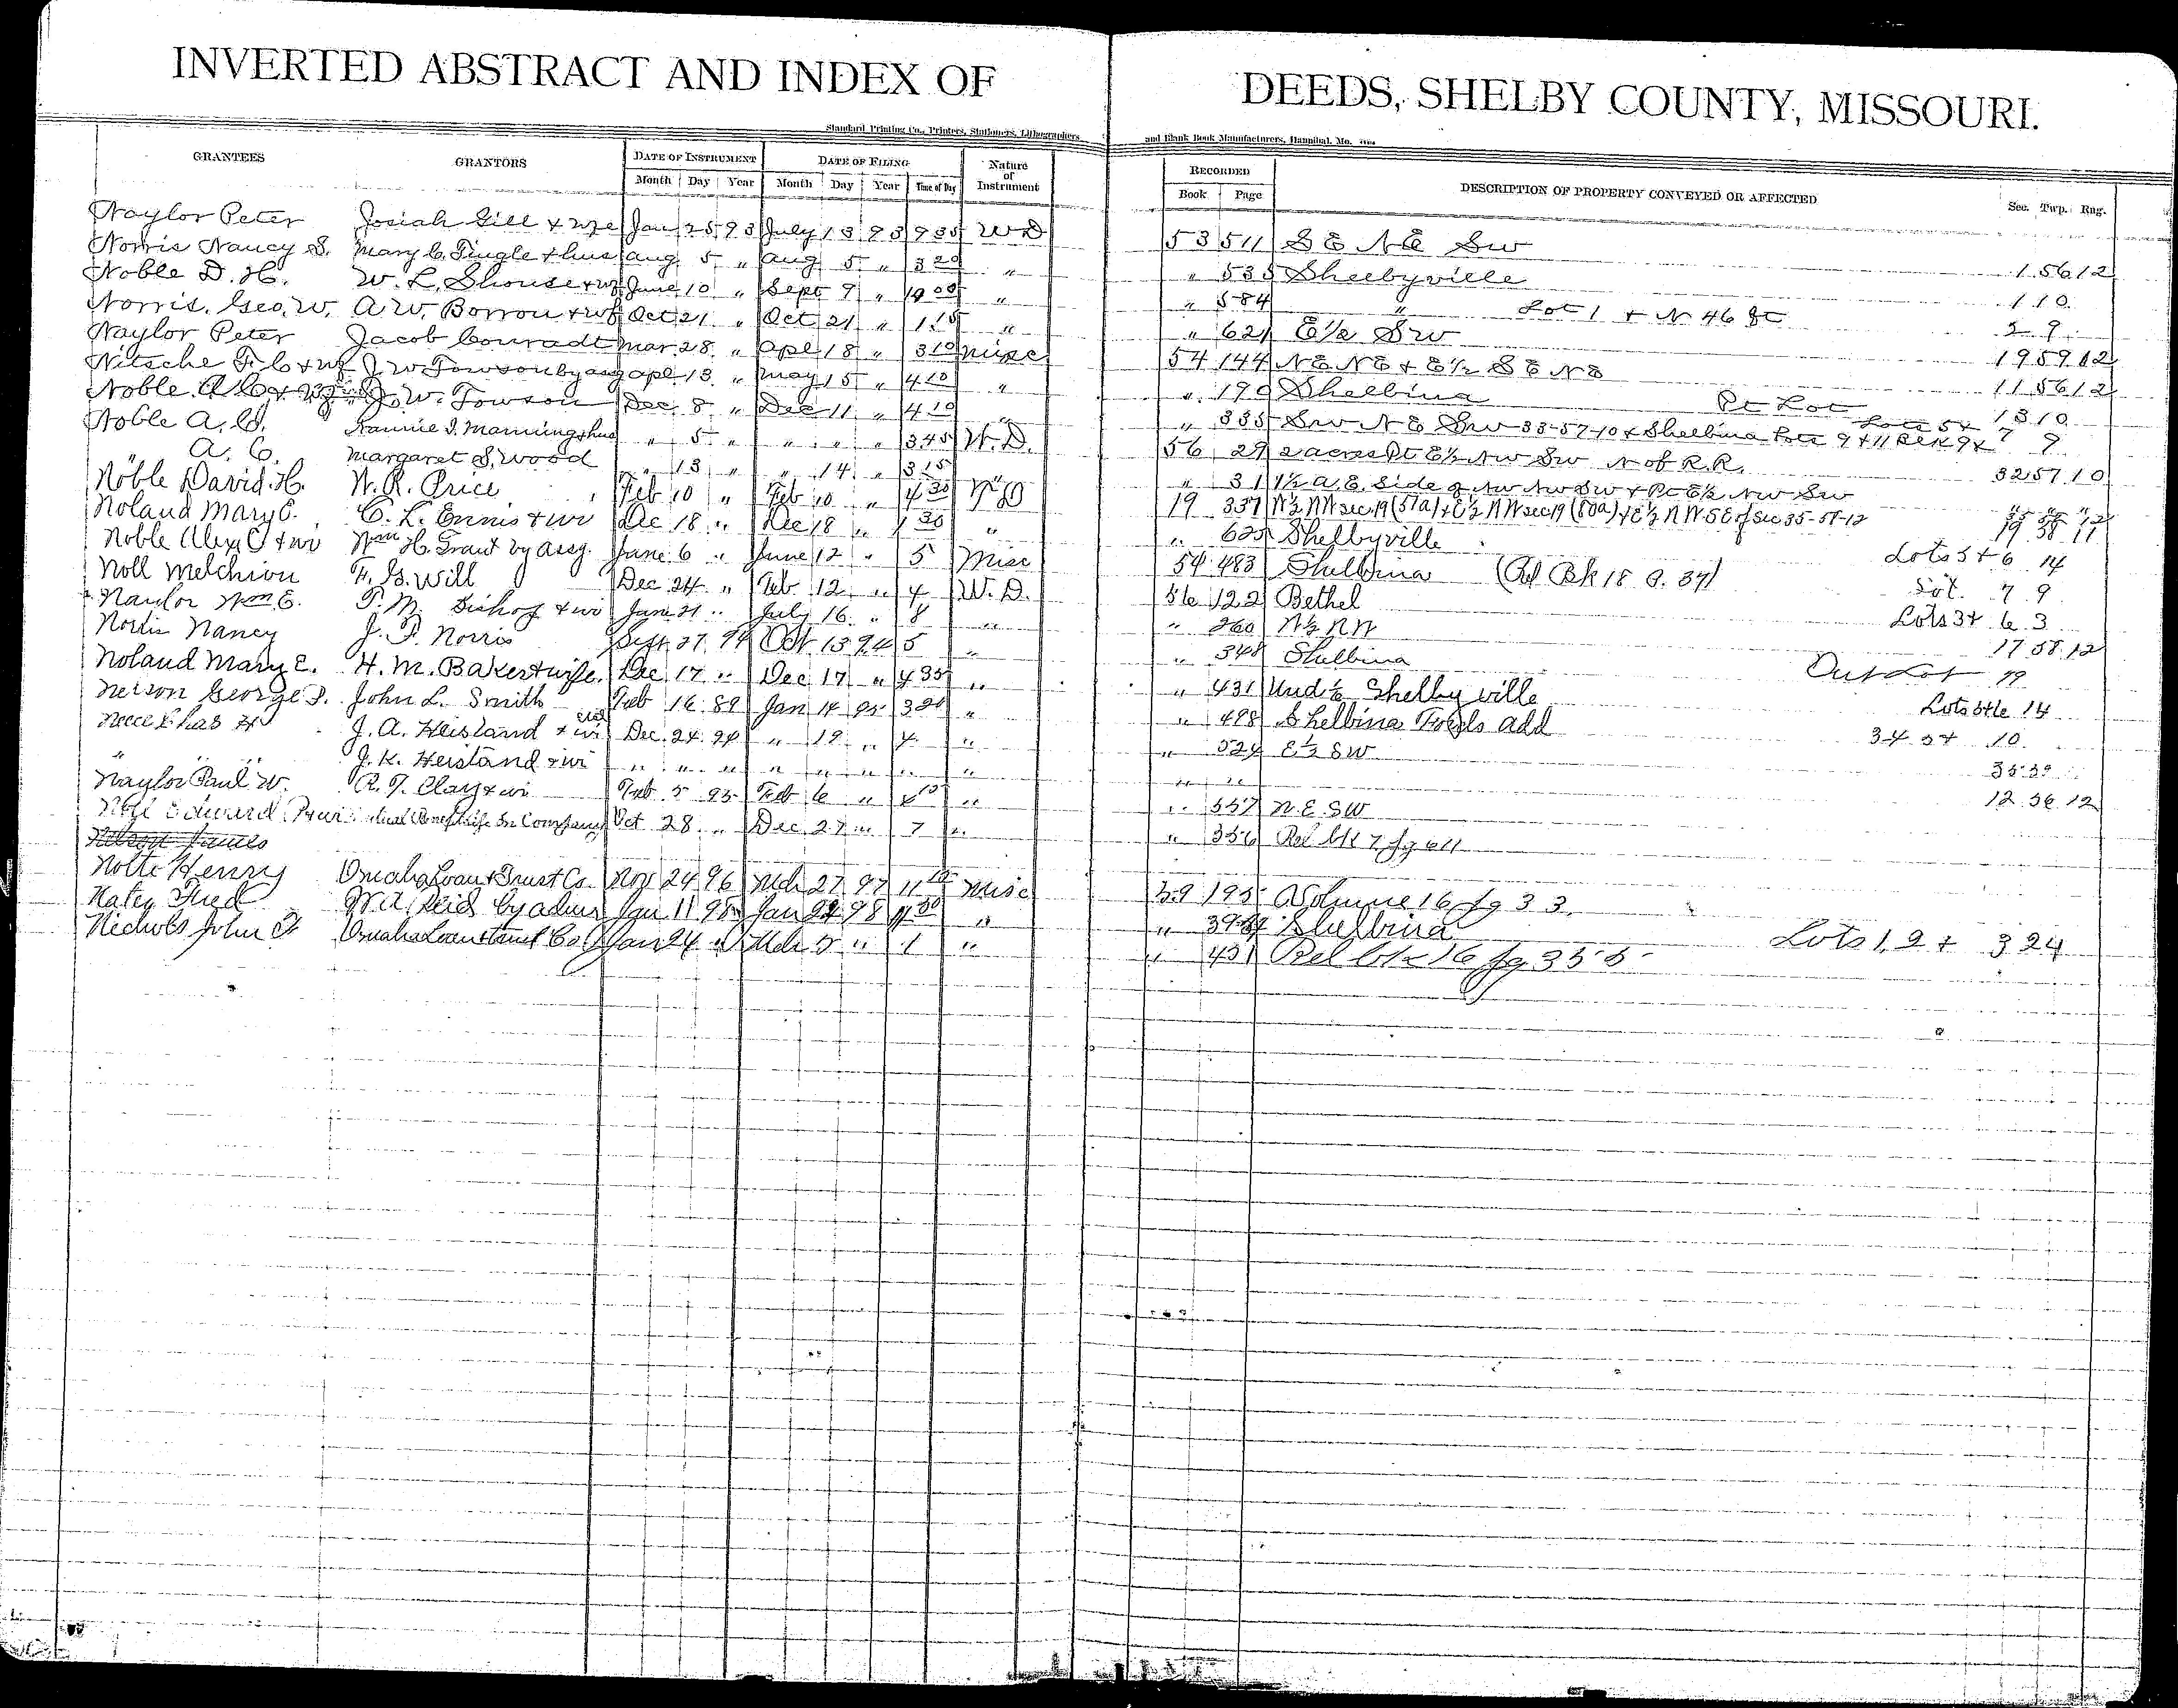 INVERTED ABSTRACT AND INDEX OF DEEDS, SHELBY COUNTY, MISSOURI.
Standard Printing Co., Printers, Stationers, Lithographers and Blank Book Manufacturers, Hannibal, Mo.
GRANTEES GRANTORS DATE OF INSTRUMENT DATE OF FILING Nature of Instrument RECORDED DESCRIPTION OF PROPERTY CONVEYED OR AFFECTED Sec. Twp. Rng.
Month Day Year Month Day Year Time of Day Book Page
Naylor Peter Josiah Gill + wfe Jan 25 93 July 13 93 9 35 W D 53 511 S E N E S W 1 56 12
Norris Nancy S. Mary C. Tingle + hus Aug 5 " Aug 5 " 3 20 " " 535 Shelbyville 1 10
Noble D. H. W. L. Shouse + wf June 10 " Sept 9 " 10 00 " " 584 " Lot 1 + N 46 ft 2 9
Norris, Geo. W. A. W. Borron + wf Oct 21 " Oct 21 " 1 15 " " 621 E ½ S W 19 59 12
Naylor Peter Jacob Conradt Mar 28 " Apl 18 " 3 10 Misc 54 144 N E N E + E ½ S E N E 11 56 12
Nitsche F. C. + wf J. W. Towson by asg Apl 13 " May 15 " 4 10 " " 190 Shelbina Pt Lot 13 10
Noble A. C. + wf J. W. Towson Dec 8 " Dec 11 " 4 10 " " 335 S W N E S W 33-57-10 + Shelbina Lots 9 + 11 Blk 9 + Lots 5 + 7 9
Noble A. C. Fannie I. Manning + hus " 5 " " " " 3 45 W. D. 56 29 2 acres Pt E ½ N W S W N of R. R. 32 57 10
A. C. Margaret S. Wood " 13 " " 14 " 3 15 " " 31 1 ½ a. E. Side of N W N W S W + Pt E ½ N W S W " " "
Noble David H. W. R. Price Feb 10 " Feb 10 " 4 30 W D 19 337 N ½ N W sec 19 (57a) + E ½ N W sec 19 (80a) + E ½ N W S E of Sec 35-58-12 19 58 11
Noland Mary E. C. L. Ennis + wi Dec 18 " Dec 18 " 1 30 " " 625 Shelbyville Lots 5 + 6 14
Noble Alex C + wi Wm H. Grant by assg. June 6 " June 12 " 5 Misc 54 483 Shelbina (Rel Bk 18 P. 37) Lot 7 9
Noll Melchior F. G. Will Dec 24 " Feb 12 " 4 W. D. 56 122 Bethel Lots 3 + 6 3
Naylor Wm E. T. M. Bishop + wi June 21 " July 16 " 8 " " 260 N ½ N W 17 58 12
Norris Nancy J. P. Norris Sept 27 94 Oct 13 94 5 " " 348 Shelbina Out Lot 19
Noland Mary E. H. M. Baker + wife. Dec 17 " Dec 17 " 4 35 " " 431 Und ½ Shelbyville Lots 5 + 6 14
Nelson George P. John L. Smith Feb 16 89 Jan 14 95 3 20 " " 498 Shelbina Add 3 4 5 + 10
Neece Chas H J. A. Heistand + wi Dec. 24 94 " 19 " 4 " " 524 E ½ S W 35 59
" " J. K. Heistand + wi " " " " " " " " " "
Naylor Paul W. R. T. Clay + wi Feb 5 95 Feb 6 " " " 557 N. E. S W 12 56 12
Edward Benefit Life In Company Oct 28 " Dec 27 " 7 " " 356 Rel blk 7 pg 611
Nelson James
Nolte Henry Omaha Loan + Trust Co. Nov 24 96 Mch 27 97 11 15 Misc 59 195 Volume 16 pg 33
Fred Reid by admr Jan 11 98 Jan 98 11 30 " " Shelbina Lots 1, 2 + 3 24
Nichols John Omaha Loan + Trust Co Jan 24 " Mch 5 " 1 " " 431 Rel blk 16 pg 355